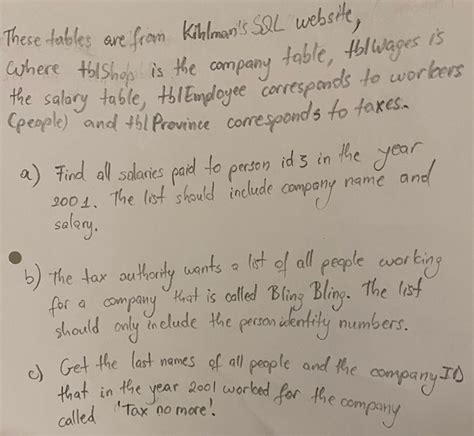 These tables are from Kihlman's SQL website,
where tblShops is the company table, tblWages is
the salary table, tblEmployee corresponds to workers
(people) and tblProvince corresponds to taxes.
a) Find all salaries paid to person id 3 in the year
2001. The list should include company name and
salary.
b) The tax authority wants a list of all people working
for a company that is called Bling Bling. The list
should only include the person identity numbers.
c) Get the last names of all people and the company ID
that in the year 2001 worked for the company
called "Tax no more!